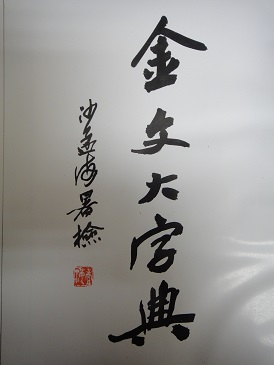 金文大字典
沙孟海署检